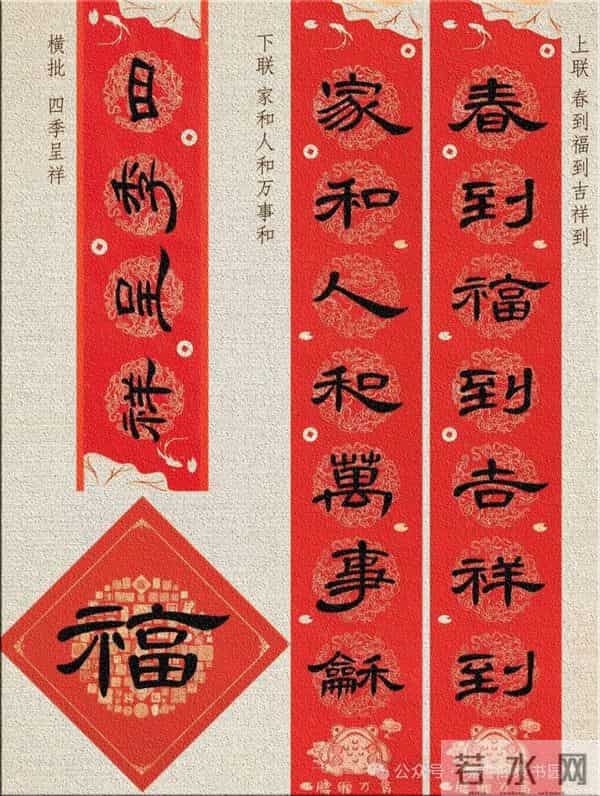 上联 春到福到吉祥到
春到福到吉祥到
家和人和萬事龢
下联 家和人和万事和
四季呈祥
横批 四季呈祥
福
公众号
若水网